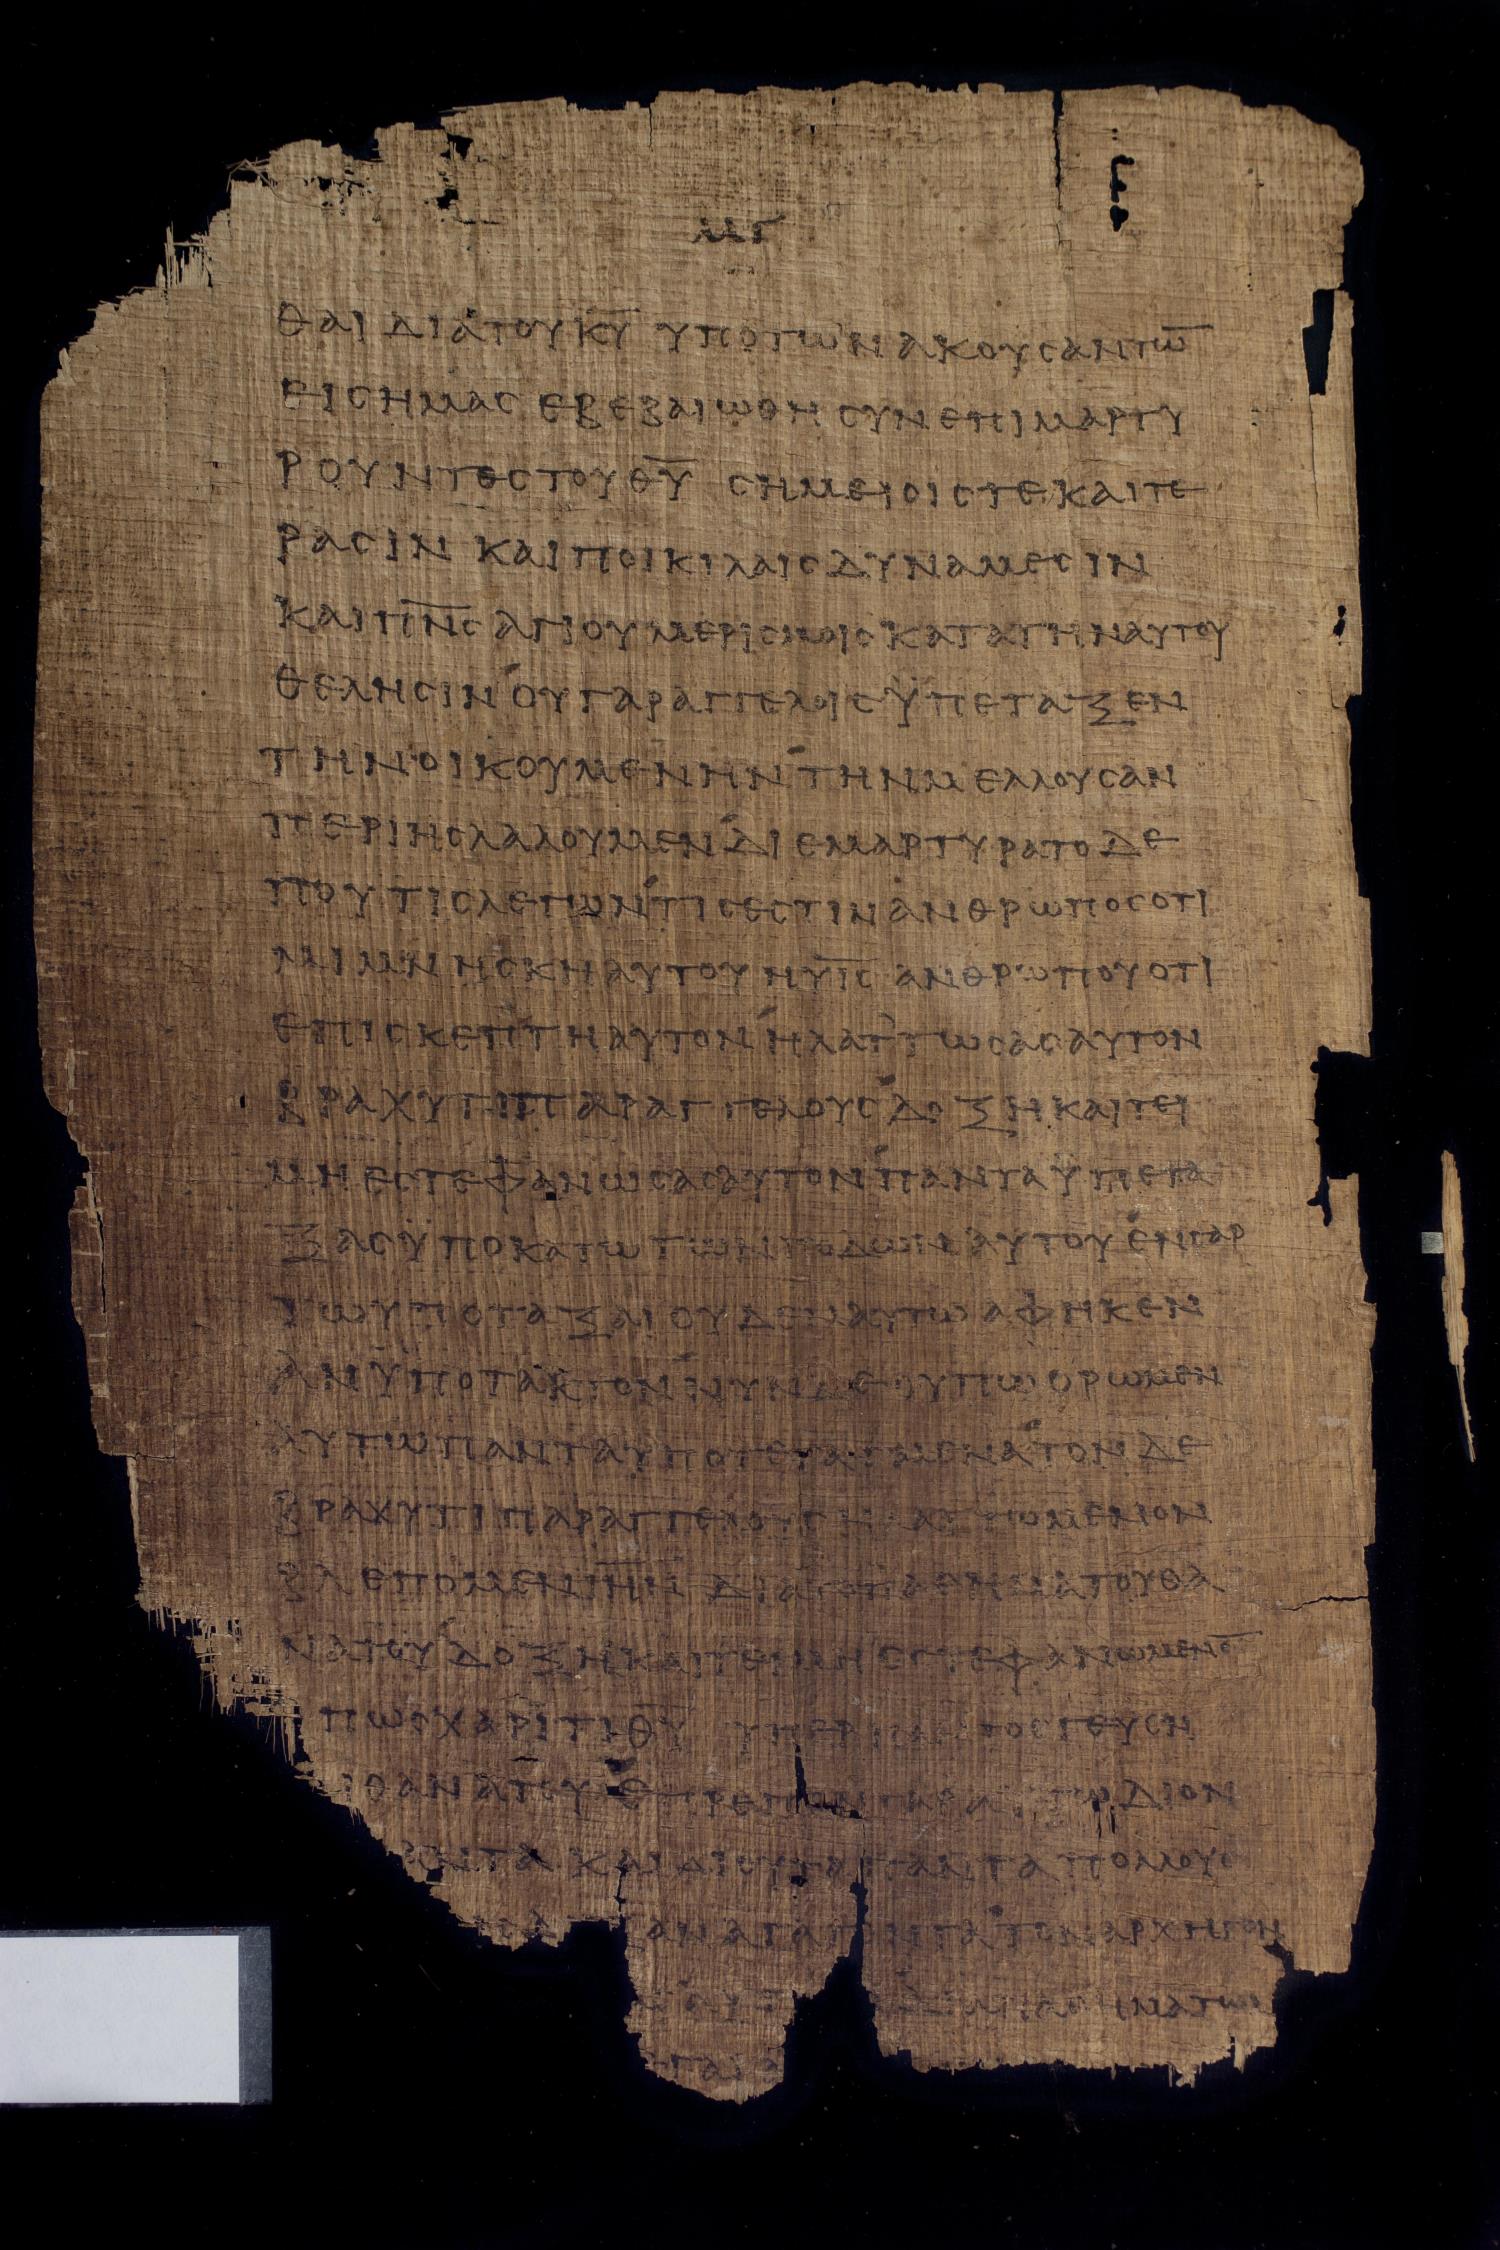 μγ
θαι δια του κ̅υ̅ υπο των ακουσαντω̅
εις ημας εβεβαιωθη συνεπιμαρτυ
ρουντος του θ̅υ̅ σημειοις τε και τε
ρασιν και ποικιλαις δυναμεσιν
και π̅ν̅ς̅ αγιου μερισμοις κατα την αυτου
θελησιν ου γαρ αγγελοις ϋπεταξεν
την οικουμενην την μελλουσαν
περι ης λαλουμεν διεμαρτυρατο δε
που τις λεγων τις εστιν ανθρωπος οτι
μιμνησκη αυτου η υ̅ι̅ς̅ ανθρωπου οτι
επισκεπτη αυτον ηλαττωσας αυτον
βραχυ τι παρ αγγελους δοξη και τει
μη εστεφανωσας αυτον παντα ϋπετα
ξας ϋποκατω των ποδων αυτου εν γαρ
τω υποταξαι ουδεν αυτω αφηκεν
ανϋποτακτον νυν δε ουπω ορωμεν
αυτω παντα υποτεταγμενα τον δε
βραχυ τι παρ αγγελους ηλαττωμενον
βλεπομεν ι̅η̅ν̅ δια το παθημα του θα
νατου δοξη και τειμη εστεφανωμενο̅
πως χαριτι θ̅υ̅ υπερ παντος γευση
θανατου επρεπεν γαρ αυτω δι ον
παντα και δι ου τα παντα πολλους
αγαγοντα τον αρχηγον
παθηματων